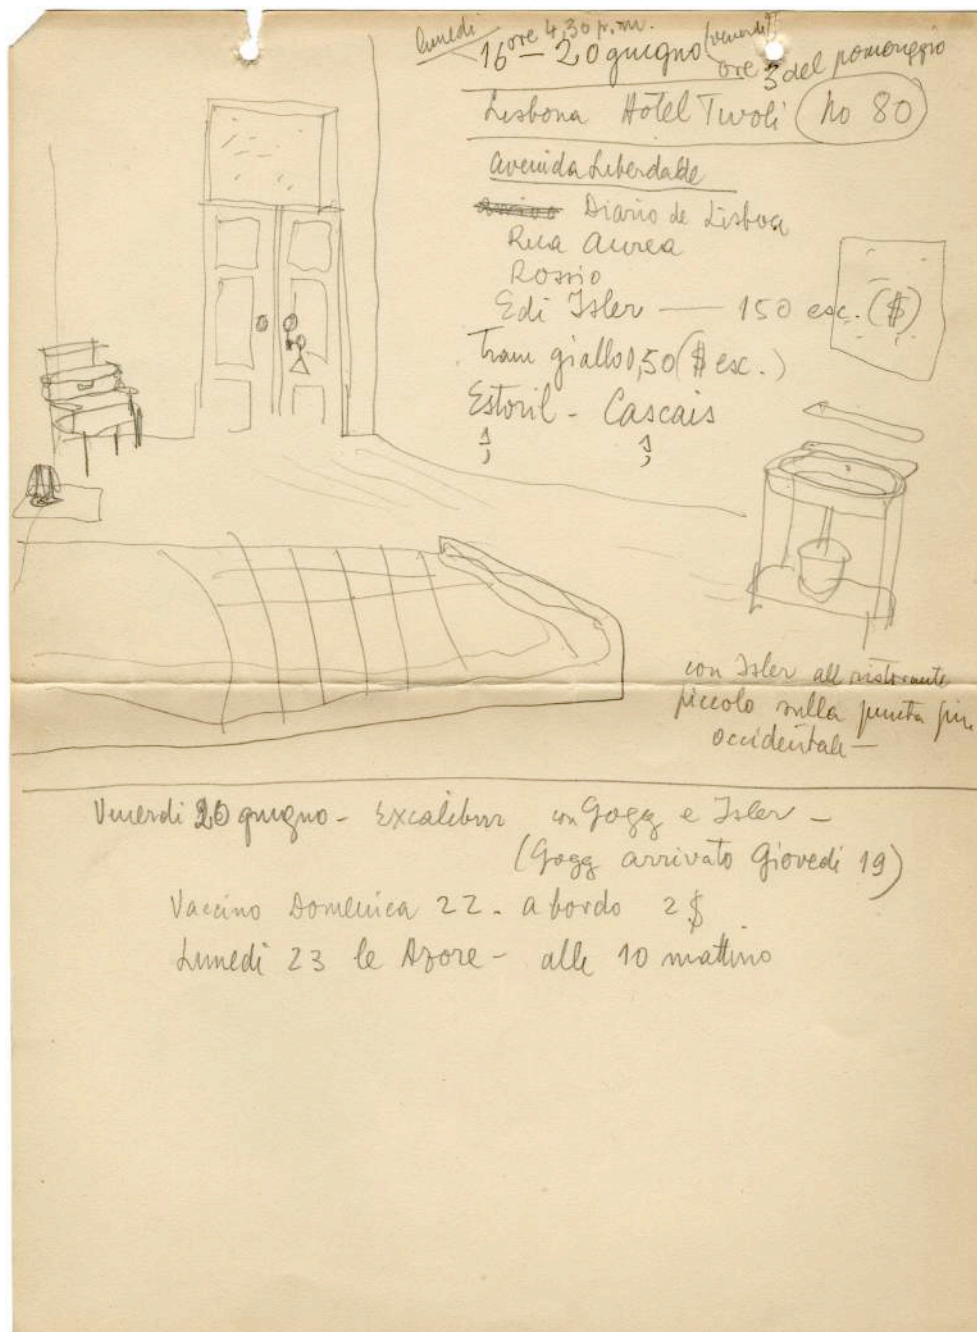 lunedi ore 4,30 p.m.
16 — 20 giugno (venerdi)
ore 3 del pomeriggio
Lisbona Hôtel Tivoli (No 80)
Avenida Liberdade
Diario de Lisboa
Rua Aurea
Rossio
Edi Isler — 150 esc. ($)
Tram giallo 0,50 ($ esc.)
Estoril - Cascais
con Isler all ristorante
piccolo sulla punta più
occidentale —
Venerdi 20 giugno - Excalibur con Gogg e Isler -
(Gogg arrivato Giovedi 19)
Vaccino Domenica 22 - a bordo 2 $
Lunedi 23 le Azore - alle 10 mattino